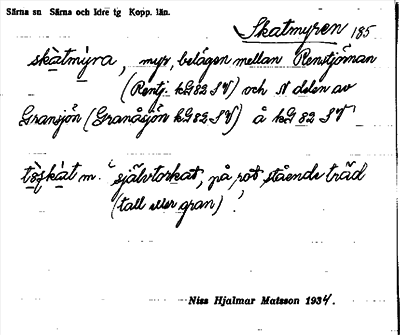 Särna sn Särna och Idre tg Kopp. län.
Skatmyren 185
skàtmy̌ra, myr, belägen mellan Renstjärnan
(Rentj. kG 82 SV) och N delen av
Gransjön (Granåsjön kG 82 SV) å kG 82 SV
tòṣkàt m. "självtorkat, på rot stående träd
(tall eller gran)!
Niss Hjalmar Matsson 1934.